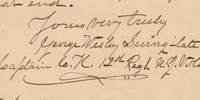 at end.
Yours very truly
George Wesley Ewing - late
Captain Co. K. 12th Regt N.J. Vols